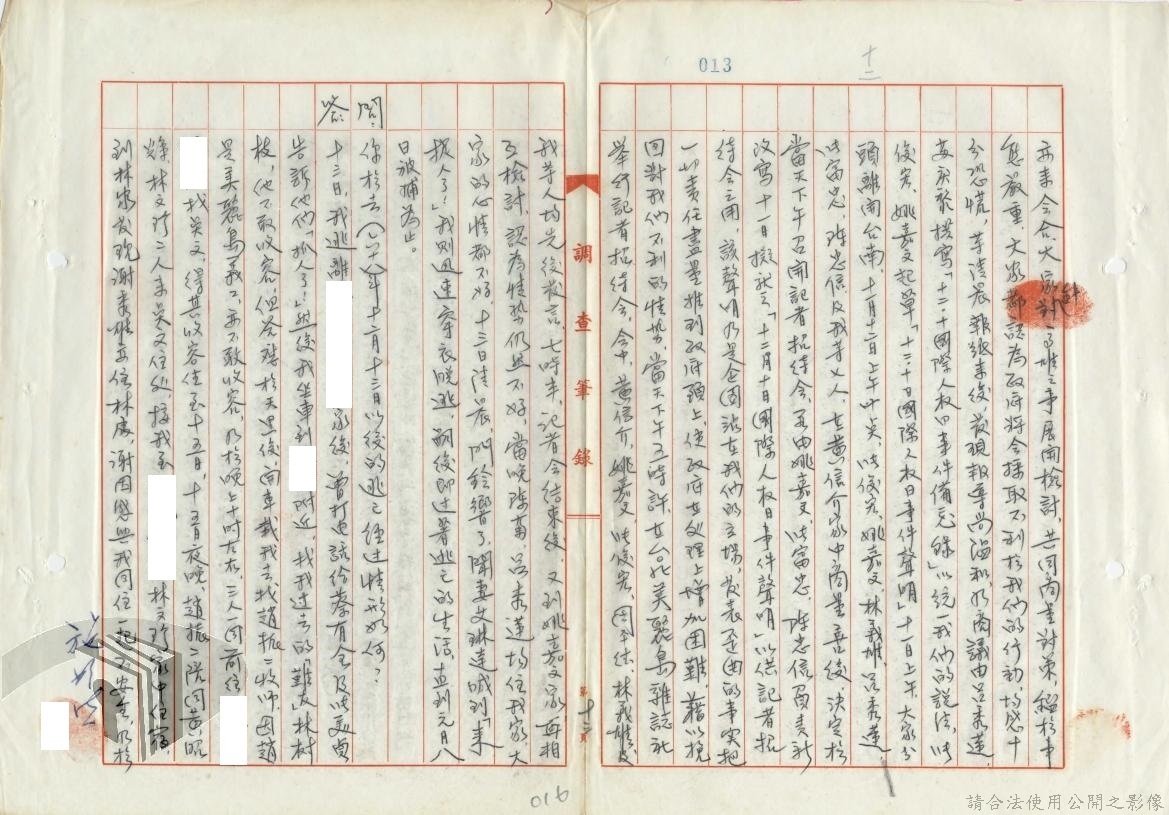 013
十二
來參加大家對高雄之事展開檢討,共同商量對策,鑑於事
態嚴重,大家都認為政府將會採取不利於我們的行動均感十
分恐慌,等清晨報紙來後,發現報導尚溫和,乃商議由呂秀蓮
負責撰寫「十二十國際人權日事件備忘錄」以統一我們的說法,由
俊宏、姚嘉文起草「十二十日國際人權日事件聲明」十一日上午,大家分
頭離開台南,十二月十二日上午十時,許俊宏、姚嘉文、林義雄、呂秀蓮、
許富忠、陳忠信及我等人,在黃信介家中商量善後,決定於
當天下午召開記者招待會,並由姚嘉文、許富忠、陳忠信負責新
改寫十一日擬就之「十二月十日國際人權日事件聲明」以供記者招
待會之用,該聲明乃是企圖站在我們的立場,發表歪曲的事實把
一切責任盡量推到政府頭上,使政府在處理上增加困難,藉以挽
回對我們不利的情勢,當天下午五時許,在台北美麗島雜誌社
舉行記者招待會,會中,黃信介、姚嘉文、許俊宏、周平德、林義雄及
調查筆錄
第十三頁
我等人均先後發言,七時半,記者會結束後,又到姚嘉文家再相
互檢討,認為情勢仍然不好,當晚陳菊、呂秀蓮均住我家,大
家的心情都不好,十三日清晨,門鈴響了,聞妻艾琳達喊到「來
抓人了!」我則迅速穿衣脫逃,嗣後即過著逃亡的生活,直到元月八
日被捕為止。
問:你於去(六十八)年十二月十三日以後的逃亡經過情形如何?
答:十三日,我逃離 家後,曾打電話給蔡有全及許美貞
告訴他們「抓人了!」然後我坐車到 附近,找我過去的「難友」林樹
枝,他不敢收容,但答應於天黑後開車載我去找趙振二牧師因趙
是美麗島義工,亦不敢收容,乃於晚上十時左右,三人一同前往
找吳文,得其收容住至十五日,十五日夜晚,趙振二偕同黃昭
輝、林文珍二人來吳文住處,接我至 林文珍家中住宿
到林家發現謝秀雄亦住林處,謝因恐與我同住一起不安全,乃於
施明德
016
請合法使用公開之影像